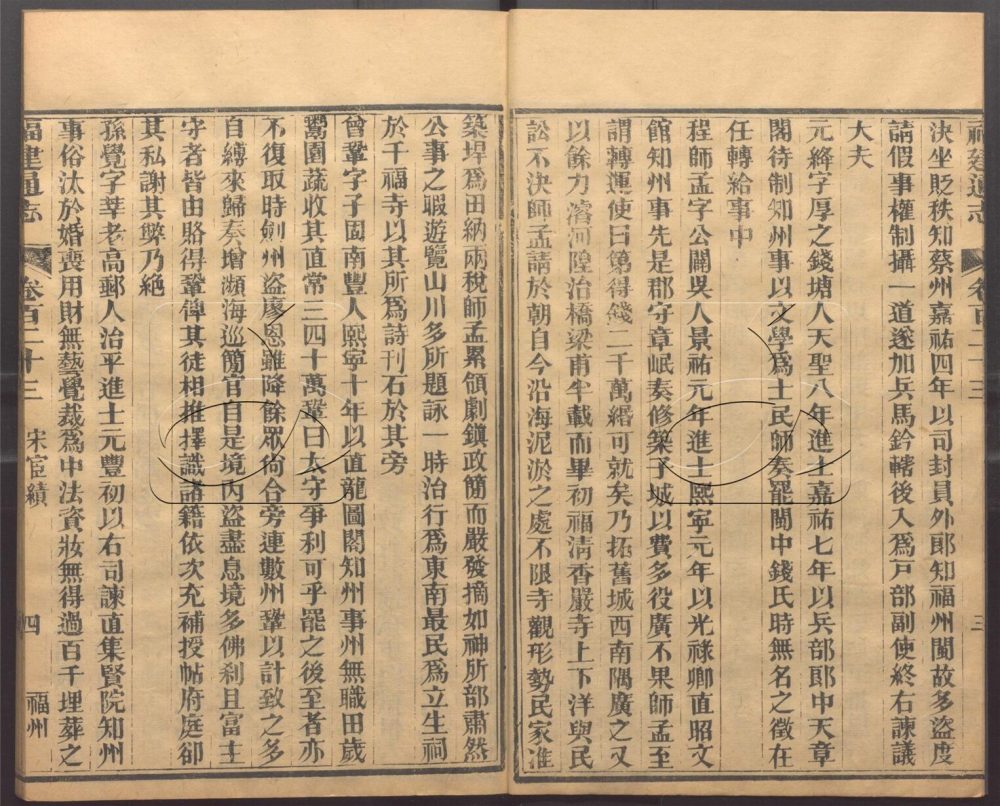 福建通志 卷百二十三 三
決坐貶秩知蔡州嘉祐四年以司封員外郎知福州閩故多盜度
請假事權制攝一道遂加兵馬鈐轄後入爲戸部副使終右諫議
大夫
元絳字厚之錢塘人天聖八年進士嘉祐七年以兵部郎中天章
閣待制知州事以文學爲士民師奏罷閩中錢氏時無名之徵在
任轉給事中
程師孟字公闢吳人景祐元年進士熙寧元年以光祿卿直昭文
館知州事先是郡守章岷奏修築子城以費多役廣不果師孟至
謂轉運使曰第得錢二千萬緡可就矣乃拓舊城西南隅廣之又
以餘力濬河隍治橋梁甫半載而畢初福清香嚴寺上下洋與民
訟不決師孟請於朝自今沿海泥淤之處不限寺觀形勢民家准
築埕爲田納兩稅師孟累領劇鎭政簡而嚴發摘如神所部肅然
公事之暇遊覽山川多所題詠一時治行爲東南最民爲立生祠
於千福寺以其所爲詩刊石於其旁
曾鞏字子固南豐人熙寧十年以直龍圖閣知州事州無職田歲
鬻園蔬收其直常三四十萬鞏曰太守爭利可乎罷之後至者亦
不復取時劍州盜廖恩雖降餘眾尚合旁連數州鞏以計致之多
自縛來歸奏增瀕海巡簡官自是境內盜盡息境多佛刹且富主
守者皆由賂得鞏俾其徒相推擇識諸籍依次充補授帖府庭卻
其私謝其獘乃絕
孫覺字莘老高郵人治平進士元豐初以右司諫直集賢院知州
事俗汰於婚喪用財無藝覺裁爲中法資妝無得過百千埋葬之
福建通志 卷百二十三 宋宦績 四 福州